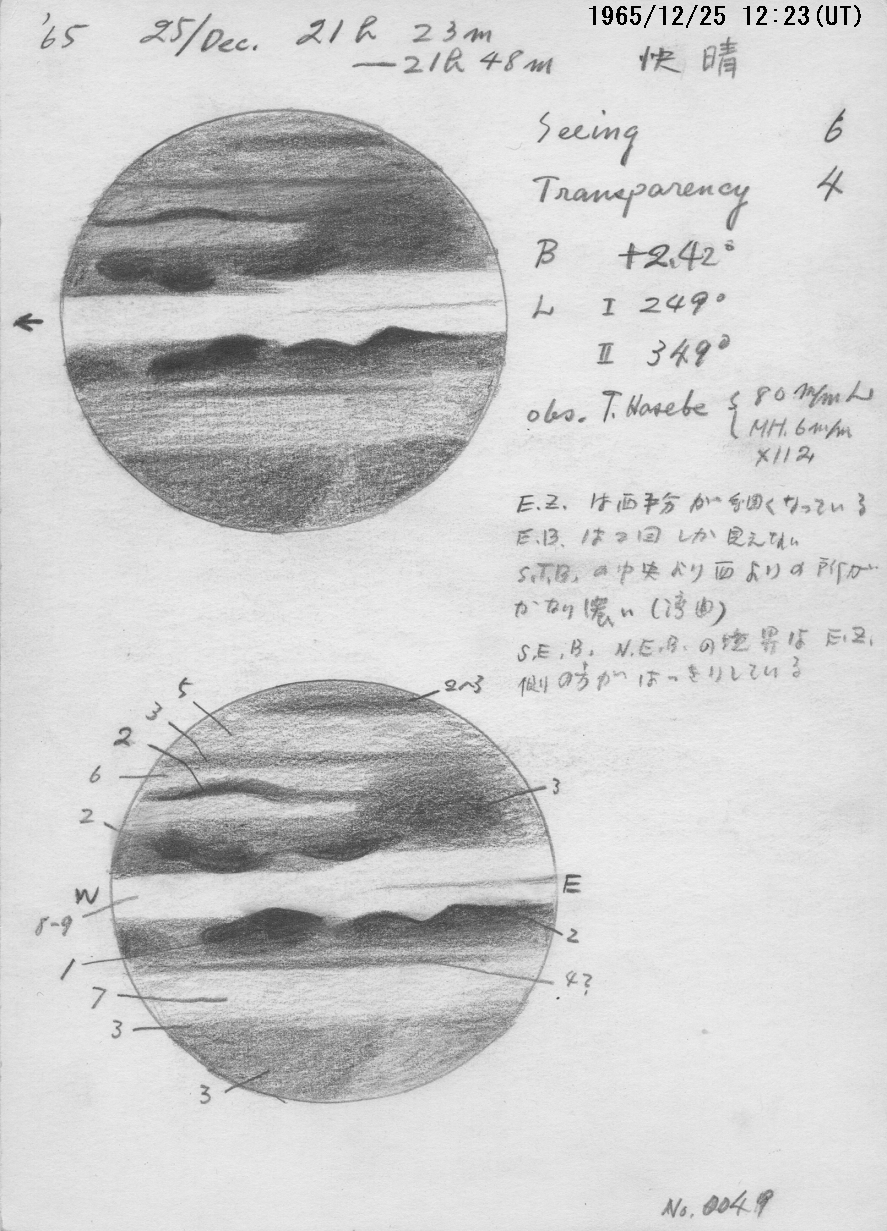 1965/12/25 12:23(UT)
'65 25/Dec. 21h 23m
—21h 48m 快晴
Seeing 6
Transparency 4
B +2.42°
L I 249°
II 349°
obs. T. Hasebe { 80 m/m L
MH. 6m/m
×112
E.Z. は西半分が細くなっている
E.B. は2回しか見えない
S.T.B. の中央より西よりの所が
かなり濃い(湾曲)
S.E.B. N.E.B. の境界は E.Z.
側の方がはっきりしている
←
5
2~3
3
2
6
3
2
W
E
8-9
2
1
4?
7
3
3
No. 0049